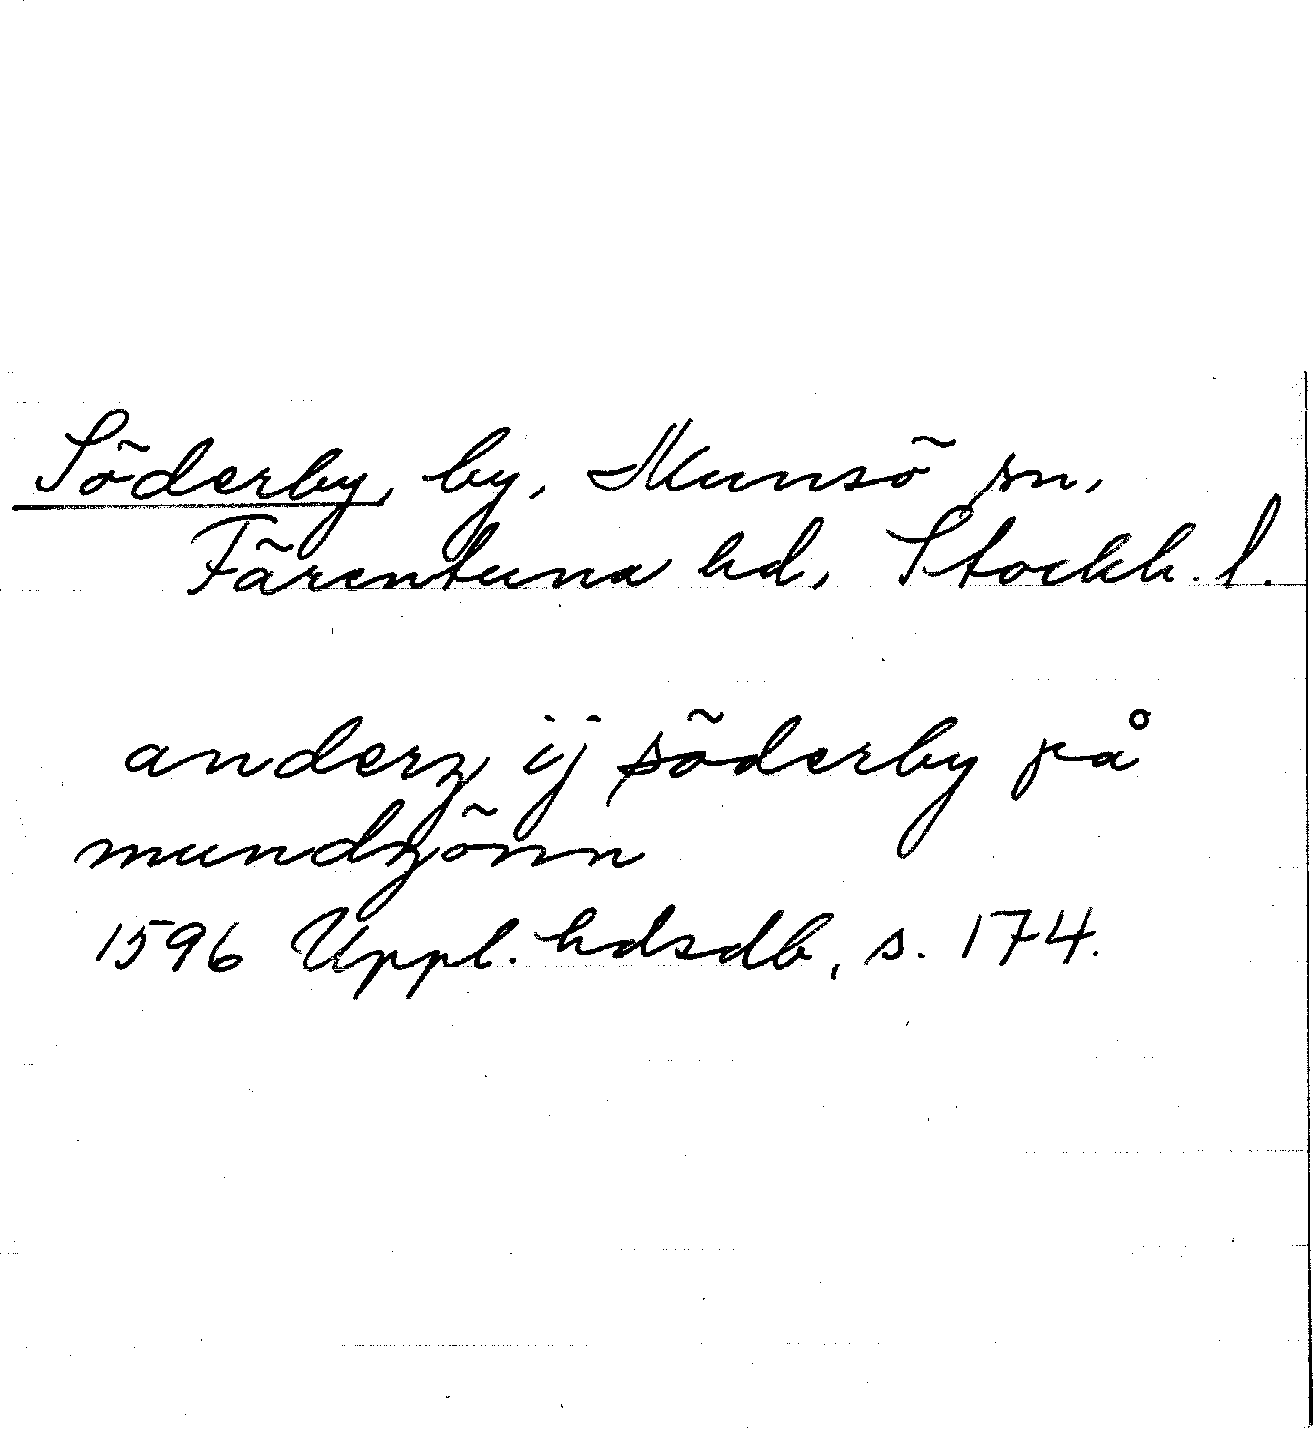 Söderby, by, Munsö sn,
Färentuna hd, Stockh. l.
anderz ij söderby på
mundzönn
1596 Uppl. hdsdb, s. 174.